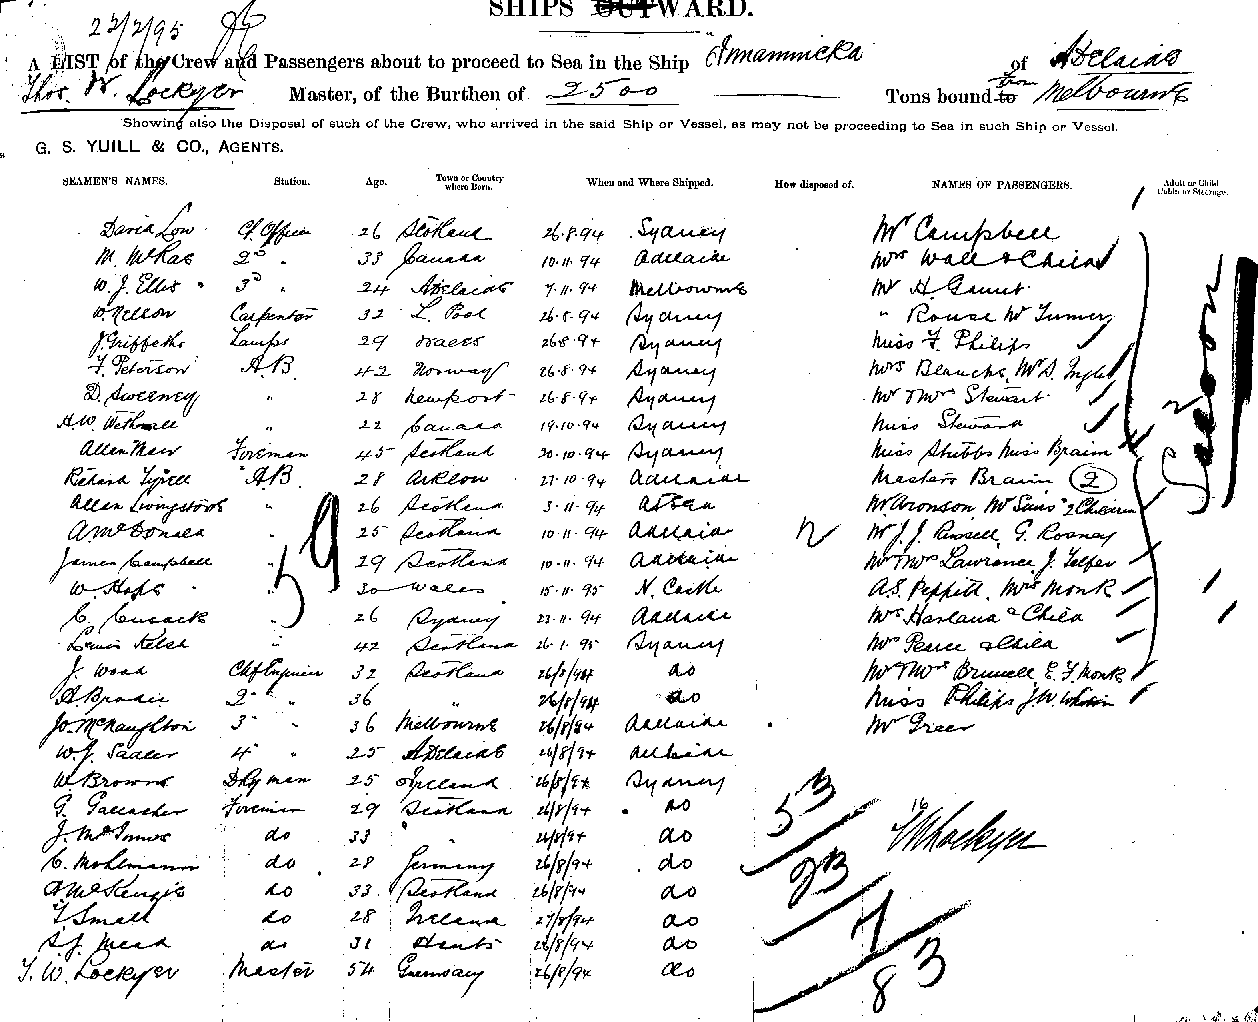 SHIPS OUTWARD.
22/2/95
A LIST of the Crew and Passengers about to proceed to Sea in the Ship Innamincka of Adelaide
Thos. W. Lockyer Master, of the Burthen of 2500 Tons bound to from Melbourne
Showing also the Disposal of such of the Crew, who arrived in the said Ship or Vessel, as may not be proceeding to Sea in such Ship or Vessel.
G. S. YUILL & CO., AGENTS.
SEAMEN'S NAMES. Station. Age. Town or Country where Born. When and Where Shipped. How disposed of. NAMES OF PASSENGERS. Adult or Child Cabin or Steerage.
David Low Cf. Officer 26 Scotland 26.8.94 Sydney Mr Campbell
M. McRae 2nd " 33 Canada 10.11.94 Adelaide Mrs Wall & Child
W. J. Ellis 3d " 24 Adelaide 7.11.94 Melbourne Mr H.
W. Nelson Carpenter 32 L. Pool 26.8.94 Sydney " Rouse Mr
J. Griffiths Lamps 29 Wales 26.8.94 Sydney Miss F. Philips
F. Peterson A.B. 42 Norway 26.8.94 Sydney Mrs Blanche, Mr S.
D. Sweeney " 28 Newport 26.8.94 Sydney Mr & Mrs Stewart
H. W. " 22 Canada 19.10.94 Sydney Miss Steward
Allan Foreman 45 Scotland 20.10.94 Sydney Miss Stubbs Miss Braim
Richard Tyrell A.B. 28 Arklow 27.10.94 Adelaide Masters Braim 2
Allan Livingstone " 26 Scotland 3.11.94 Mr Aronson, Mr 2 Children
A McDonald " 25 Scotland 10.11.94 Adelaide Mr J. J. Russell, G. Rosney
James Campbell " 29 Scotland 10.11.94 Adelaide Mr & Mrs Lawrance J. Telfer
W. Hops " 30 Wales 15.11.95 N. Castle A. S. Peppitt, Mrs Monk
C. Cusack " 26 Sydney 22.11.94 Adelaide Mrs Harland & Child
Lewis Kelsh " 42 Scotland 26.1.95 Sydney Mrs Pearce & Child
J. Wood Chf Engineer 32 Scotland 26/8/94 do Mr & Mrs E. F. Monk
A. Brodie 2nd " 36 " 26/8/94 do Miss Philips J. W.
Jo. McNaughton 3 " 36 Melbourne 26/8/94 Adelaide Mr Greer
W. J. Sadler 4 " 25 Adelaide 26/8/94 Adelaide
W. Browne Dkyman 25 Ireland 26/8/94 Sydney
G. Gallacher Foreman 29 Scotland 26/8/94 do
J. McInnes do 33 " 26/8/94 do
C. Mohlmann do 28 Germany 26/8/94 do
A McKenzie do 33 Scotland 26/8/94 do
T. Small do 28 Ireland 27/8/94 do
S. J. Mead do 31 Hants 26/8/94 do
T. W. Lockyer Master 54 Guernsey 26/8/94 do
59
Saloon
53
23
7
83
TW Lockyer